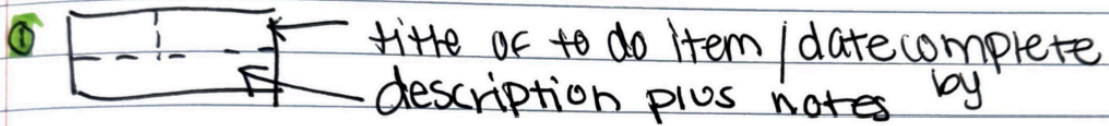 ① title of to do item | date complete by
description plus notes